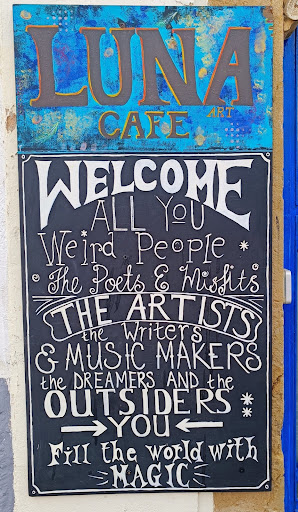 LUNA
ART
CAFE
WELCOME
ALL YOU
Weird People
The Poets & Misfits
THE ARTISTS
the Writers
& MUSIC MAKERS
the DREAMERS AND the
OUTSIDERS
YOU
Fill the world with
MAGIC